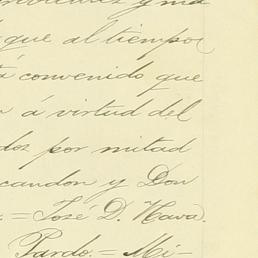 y ma
que al tiempo
á convenido que
á virtud del
dos por mitad
candon y Don
= José D. Nava.
Pardo. = Mi-